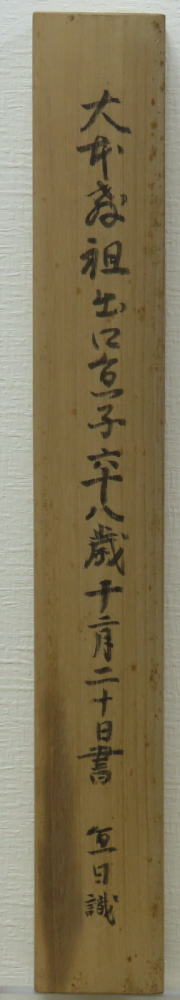 大本教祖出口直子六十八歳十二月二十日書　直日識